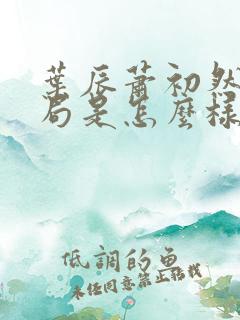 葉辰蕭初然
局是怎麼樣
低調的魚
未经同意禁止转载